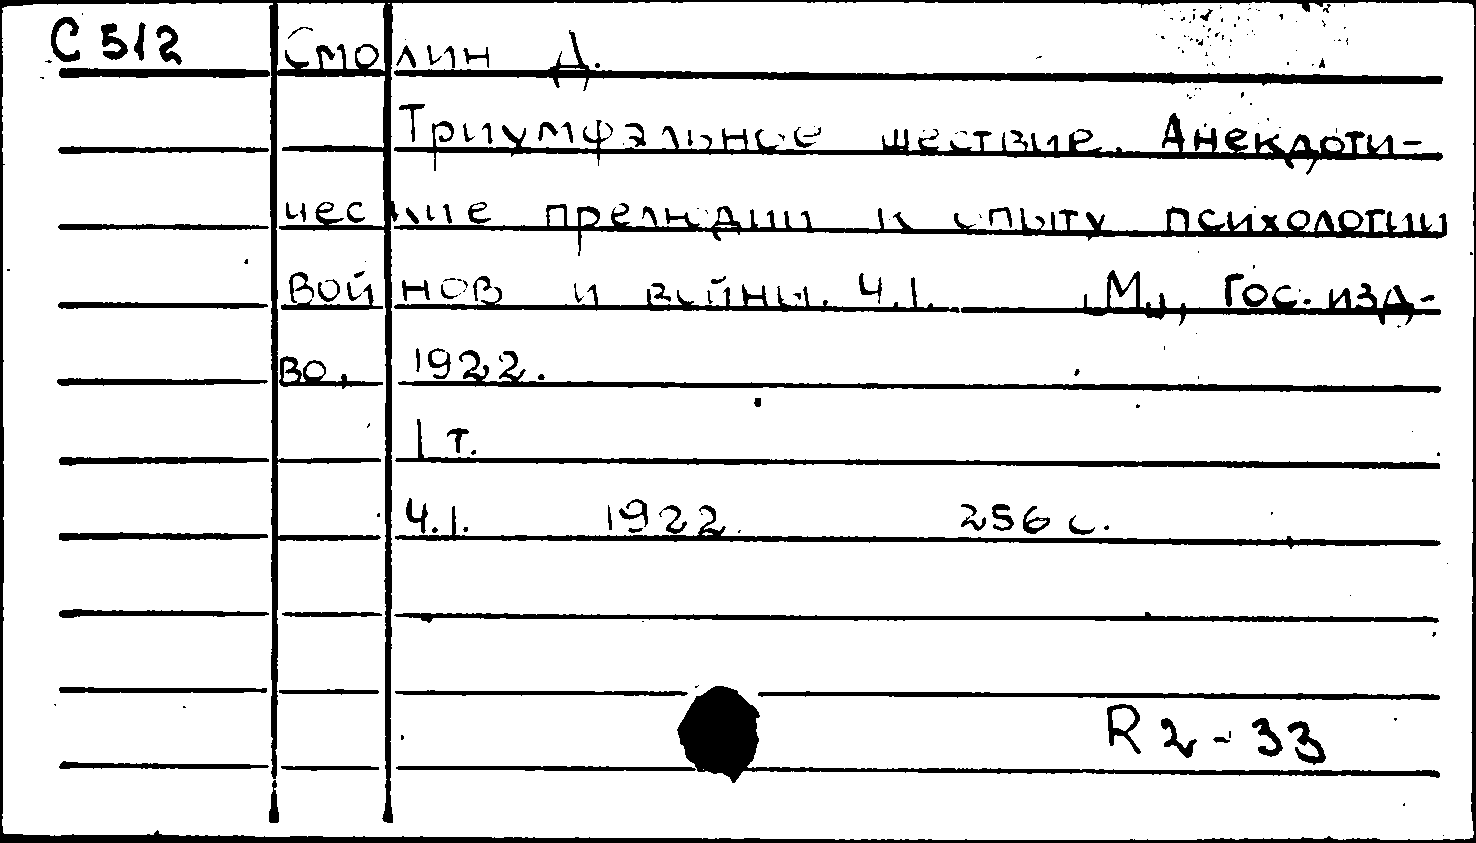 С 512 Смолин Д.
Триумфальное шествие. Анекдоти-
ческие прелюдии к опыту психологии
войнов и войны. Ч.I. М., Гос. изд-
во, 1922.
1 т.
Ч.I. 1922. 256 с.
R 2-33